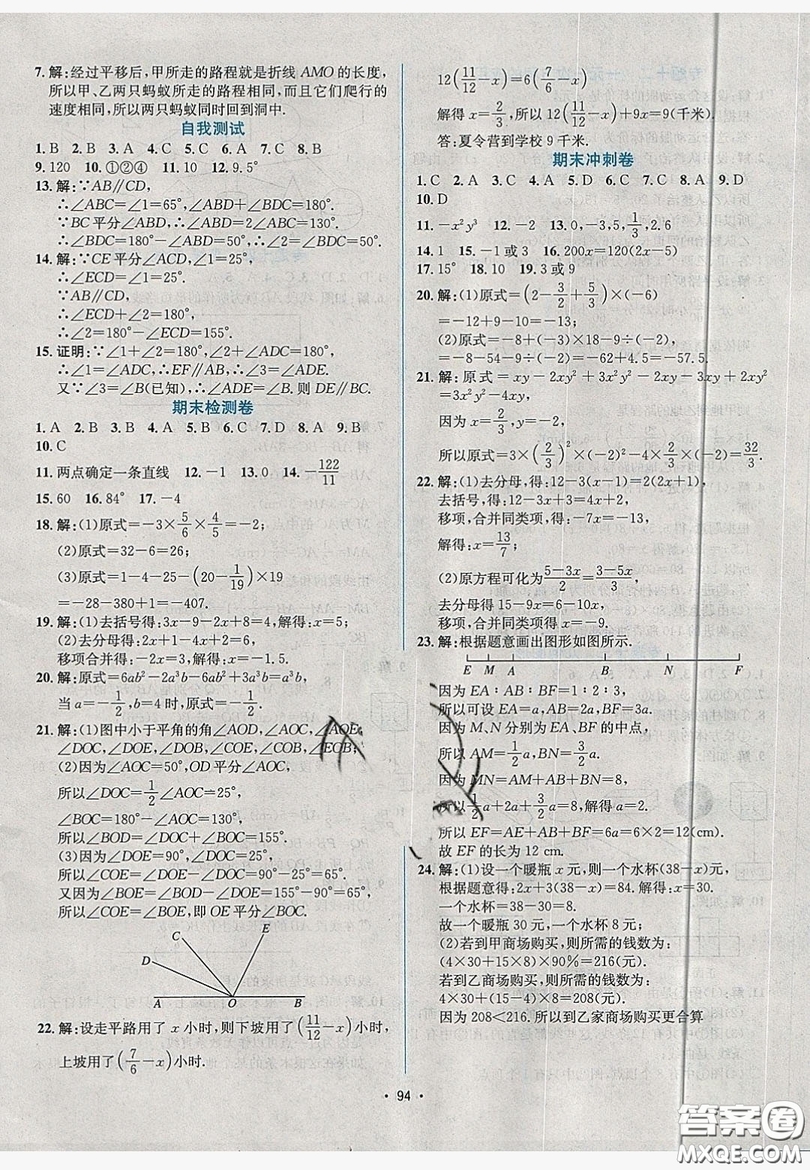 7. 解:经过平移后,甲所走的路程就是折线 AMO 的长度,
所以甲、乙两只蚂蚁所走的路程相同,而且它们爬行的
速度相同,所以两只蚂蚁同时回到洞中.
自我测试
1. B 2. B 3. C 4. A 5. C 6. A 7. C 8. B
9. 120 10. ①②④ 11. 10 12. 9.5°
13. 解:∵AB∥CD,
∴∠ABC=∠1=65°,∠ABD+∠BDC=180°.
∵BC平分∠ABD,∴∠ABD=2∠ABC=130°.
∴∠BDC=180°-∠ABD=50°,∴∠2=∠BDC=50°.
14. 解:∵CE平分∠ACD,∠1=25°,
∴∠ECD=∠1=25°.
∵AB∥CD,
∴∠ECD+∠2=180°.
∴∠2=180°-∠ECD=155°.
15. 证明:∵∠1+∠2=180°,∠2+∠ADC=180°,
∴∠1=∠ADC,∴EF∥AB,∴∠3=∠ADE.
又∵∠3=∠B(已知),∴∠ADE=∠B. 则 DE∥BC.
期末检测卷
1. A 2. B 3. C 4. A 5. B 6. C 7. D 8. B 9. B
10. C
11. 两点确定一条直线 12. -1 13. 0 14. -122/11
15. 60 16. 84° 17. -4
18. 解:(1)原式=-3×5/6×4/5=-2;
(2)原式=32-6=26;
(3)原式=1-4-25-(20-1/19)×19
=-28-380+1=-407.
19. 解:(1)去括号得:3x-9-2x+8=4,解得:x=5;
(2)去分母得:2x+4-4x=20-5x+5,
移项合并得:3x=21,解得:x=7.
20. 解:原式=6ab²-2a³b-6ab²+3a³b=a³b,
当a=-1/2,b=4时,原式=-1/2.
21. 解:(1)图中小于平角的角∠AOD,∠AOC,∠AOE,
∠DOC,∠DOE,∠DOB,∠COE,∠COB,∠EOB;
(2)因为∠AOC=50°,OD平分∠AOC,
所以∠DOC=1/2∠AOC=25°,
∠BOC=180°-∠AOC=130°,
所以∠BOD=∠DOC+∠BOC=155°.
(3)因为∠DOE=90°,∠DOC=25°,
所以∠COE=∠DOE-∠DOC=90°-25°=65°.
又因为∠BOE=∠BOD-∠DOE=155°-90°=65°,
所以∠COE=∠BOE,即OE平分∠BOC.
C E
D
A O B
22. 解:设走平路用了 x 小时,则下坡用了(11/12-x)小时,
上坡用了(7/6-x)小时.
12(11/12-x)=6(7/6-x)
解得 x=2/3,所以 12(11/12-x)+9x=9(千米).
答:夏令营到学校 9 千米.
期末冲刺卷
1. C 2. A 3. C 4. A 5. D 6. C 7. D 8. A 9. D
10. D
11. -x²y³ 12. -2 13. 0,-3,5,1/3,2.6
14. 1 15. -1或3 16. 200x=120(2x-5)
17. 15° 18. 10 19. 3或9
20. 解:(1)原式=(2-3/2+5/3)×(-6)
=-12+9-10=-13;
(2)原式=-8+(-3)×18-9÷(-2)
=-8-54-9÷(-2)=-62+4.5=-57.5.
21. 解:原式=xy-2xy²+3x²y²-2xy-2x²y²+xy+2xy²
=3x²y²-2x²y²,
因为x=2/3,y=-2,
所以原式=3×(2/3)²×(-2)²-4×2/3×(-2)=32/3.
22. 解:(1)去分母,得:12-3(x-1)=2(2x+1),
去括号,得:12-3x+3=4x+2,
移项,合并同类项,得:-7x=-13,
解得:x=13/7;
(2)原方程可化为(5-3x)/2=(3-5x)/3,
去分母得 15-9x=6-10x,
移项,合并同类项,得:x=-9.
23. 解:根据题意画出图形如图所示.
E M A B N F
因为 EA∶AB∶BF=1∶2∶3,
所以可设 EA=a,AB=2a,BF=3a.
因为 M、N 分别为 EA、BF 的中点,
所以 AM=1/2a,BN=3/2a.
因为 MN=AM+AB+BN=8,
所以1/2a+2a+3/2a=8,解得 a=2.
所以 EF=AE+AB+BF=6a=6×2=12(cm).
故 EF 的长为 12 cm.
24. 解:(1)设一个暖瓶 x 元,一个水杯(38-x)元,
根据题意得:2x+3(38-x)=84. 解得:x=30.
一个水杯=38-30=8.
故一个暖瓶 30 元,一个水杯 8 元;
(2)若到甲商场购买,则所需的钱数为:
(4×30+15×8)×90%=216(元).
若到乙商场购买,则所需的钱数为:
4×30+(15-4)×8=208(元).
因为 208<216. 所以到乙家商场购买更合算
· 94 ·
答案圈
MXQE.COM